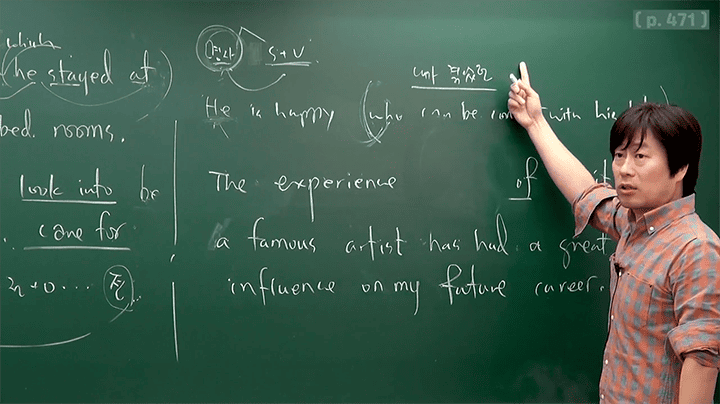 [p. 471]
which
he stayed at)
bed. rooms.
look into be
care for
명사 S + V
He is happy (who can be with his
The experience of
a famous artist has had a great
influence on my future career.